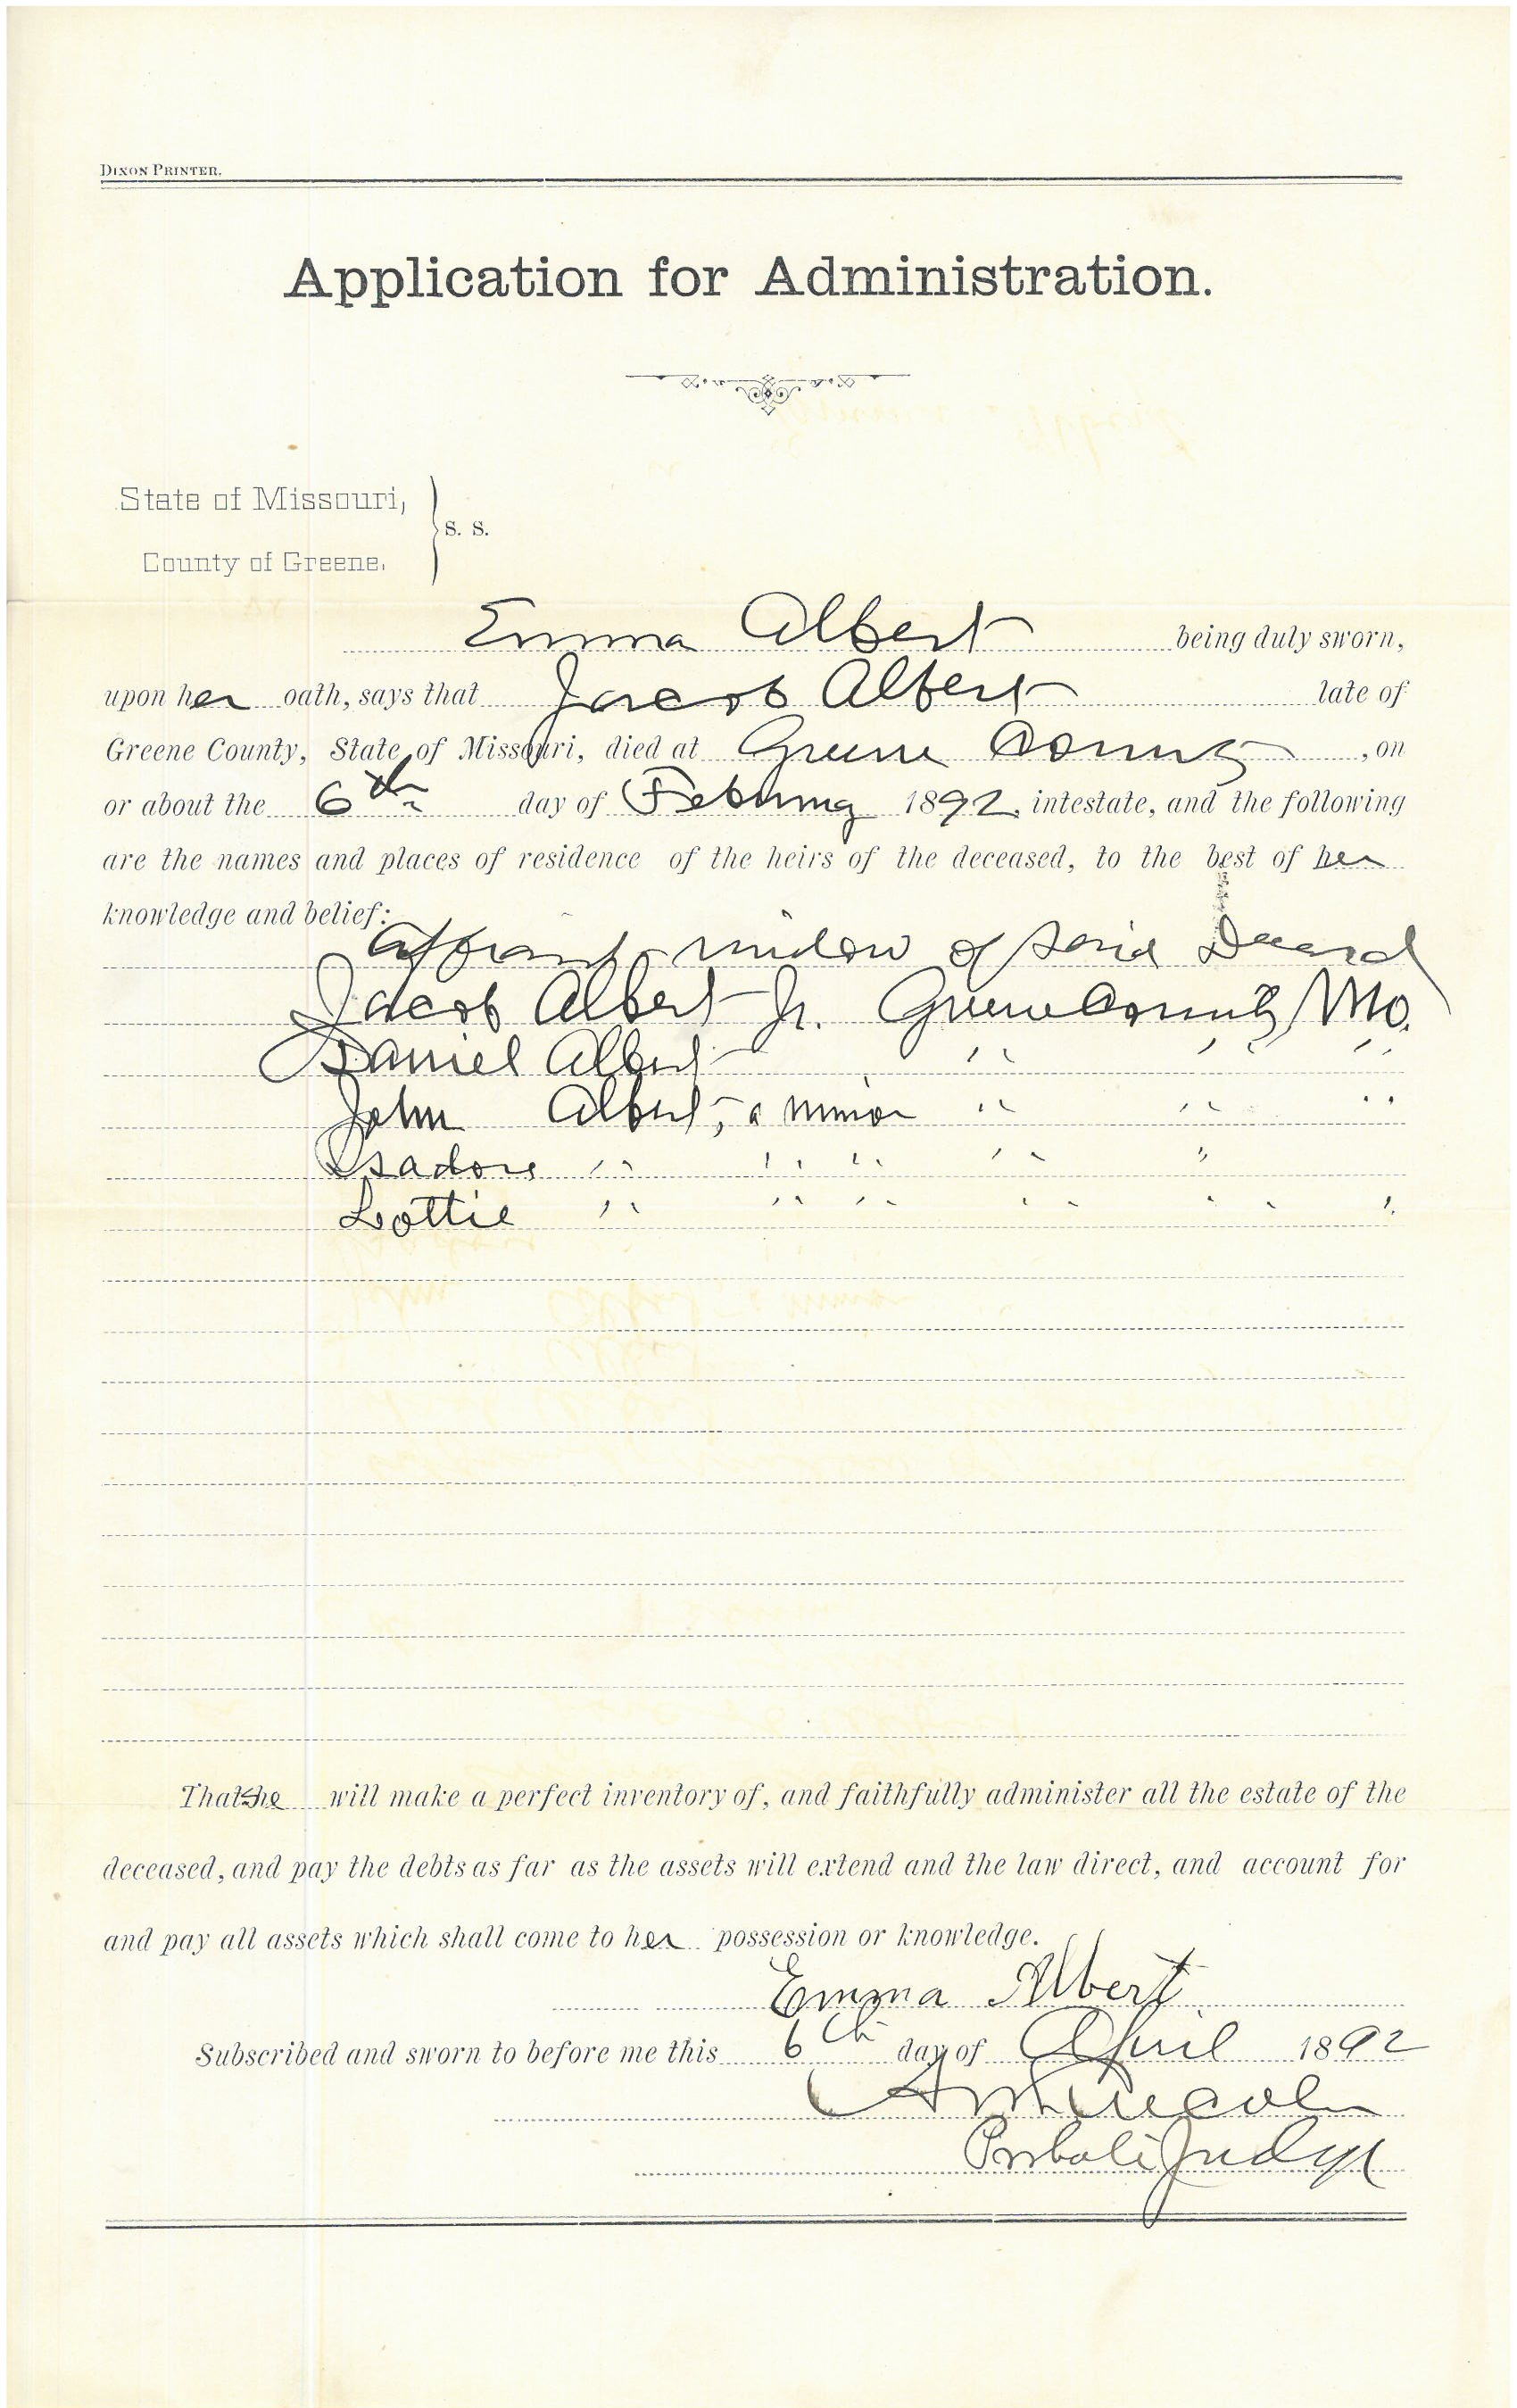 DIXON PRINTER.
Application for Administration.
State of Missouri,
S. S.
County of Greene.
Emma Albert being duly sworn,
upon her oath, says that Jacob Albert late of
Greene County, State of Missouri, died at Greene County, on
or about the 6th day of February 1892, intestate, and the following
are the names and places of residence of the heirs of the deceased, to the best of her
knowledge and belief:
Affiant, widow of said Deceased
Jacob Albert Jr. Greene County Mo.
Daniel Albert " " "
John Albert, a minor " " "
Isadore " " " " "
Lottie " " " " " "
That she will make a perfect inventory of, and faithfully administer all the estate of the
deceased, and pay the debts as far as the assets will extend and the law direct, and account for
and pay all assets which shall come to her possession or knowledge.
Emma Albert
Subscribed and sworn to before me this 6th day of April 1892
Probate Judge